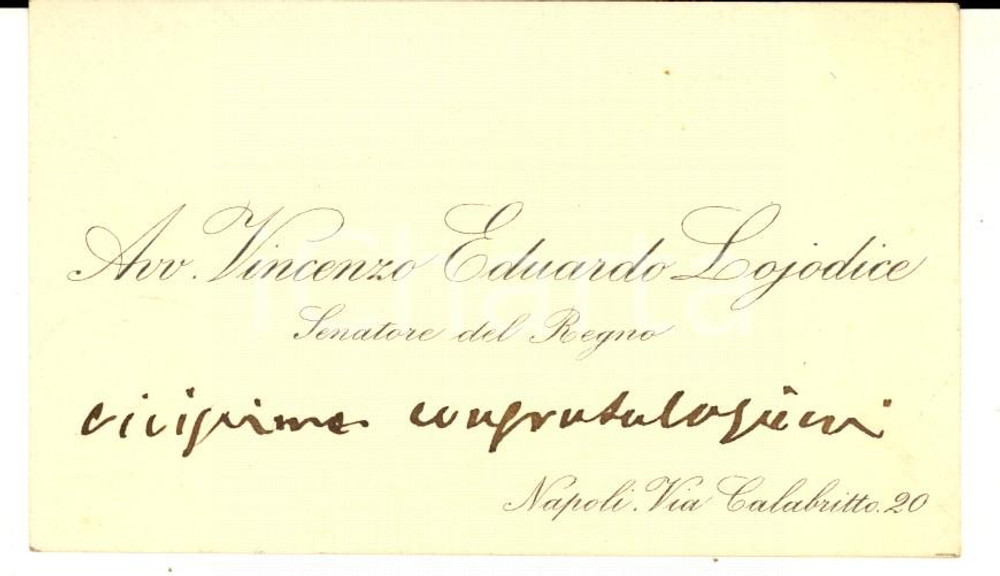 Avv. Vincenzo Eduardo Lojodice
Senatore del Regno
vivissime congratulazioni
Napoli. Via Calabritto. 20